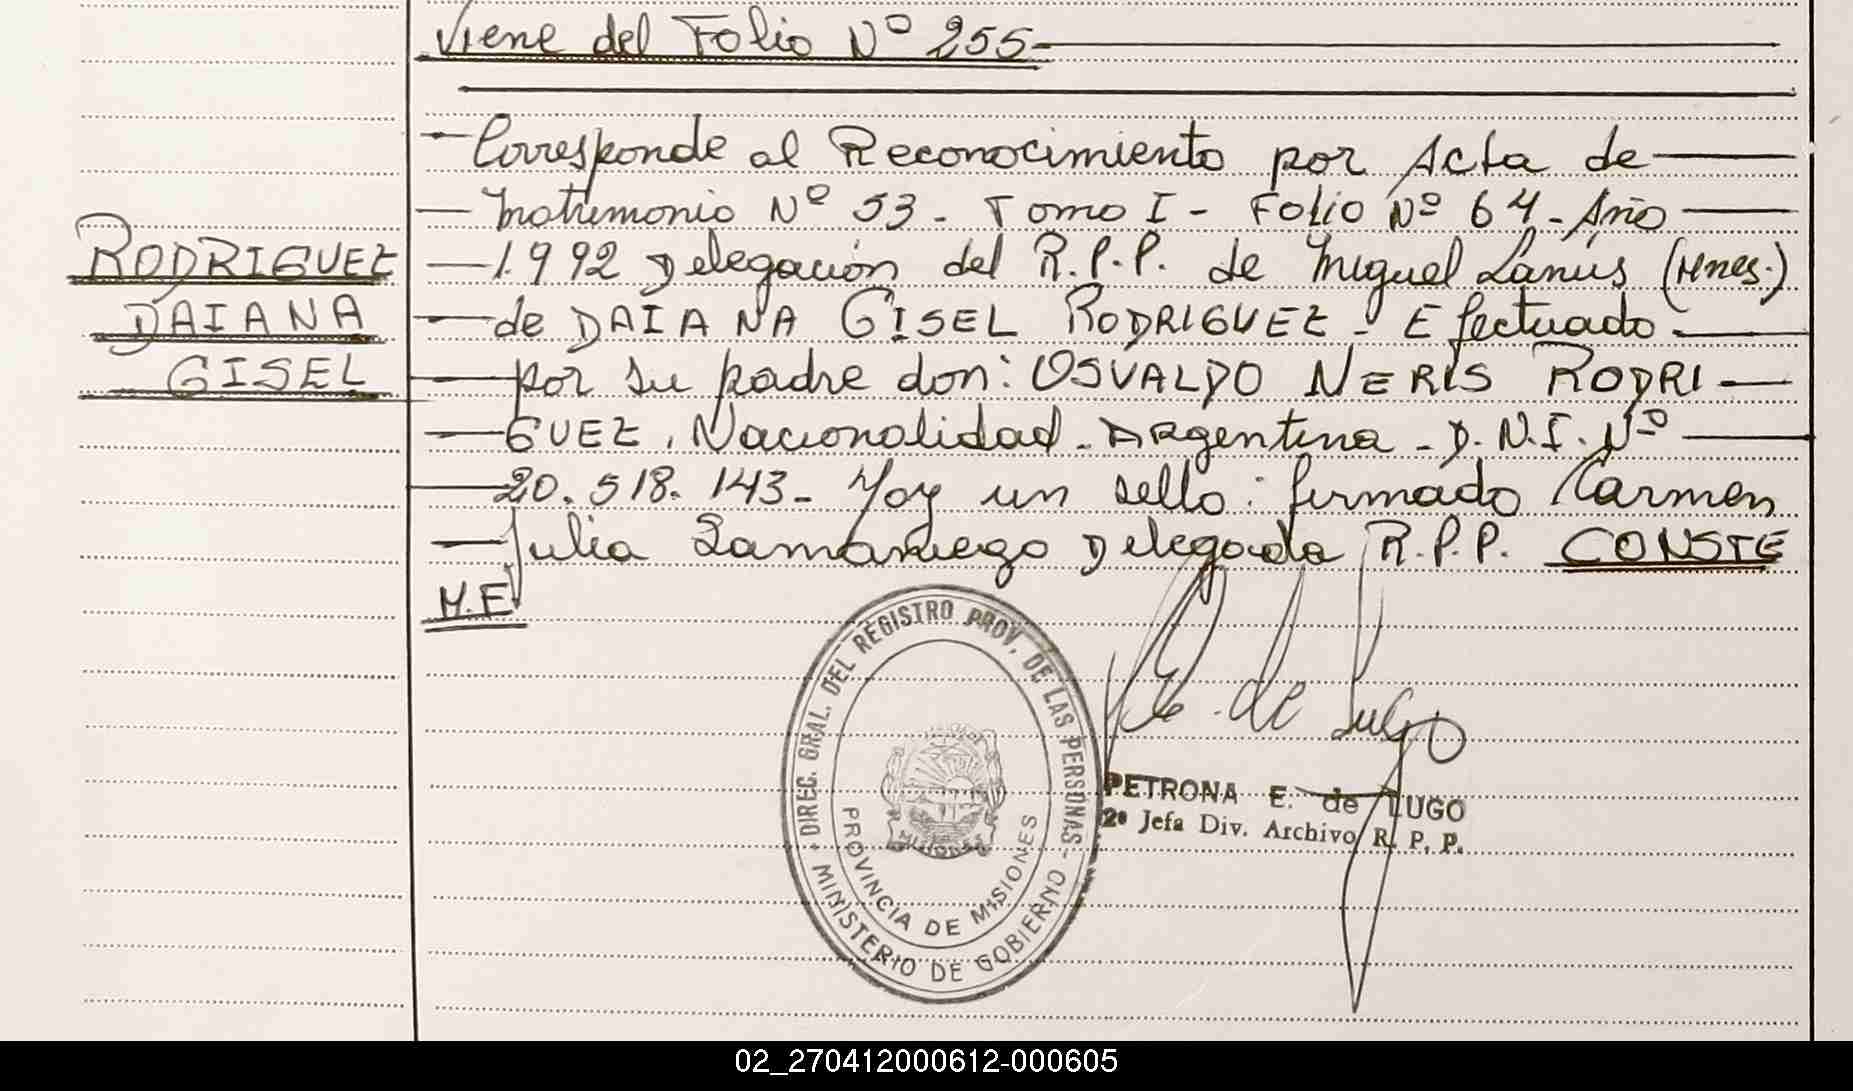 Viene del Folio Nº 255-
- Corresponde al Reconocimiento por Acta de
- Matrimonio Nº 53 - Tomo I - Folio Nº 64 - Año
RODRIGUEZ
DAIANA
GISEL
- 1.992 Delegación del R.P.P. de Miguel Lanús (Mnes.)
- de DAIANA GISEL RODRIGUEZ - Efectuado
- por su padre don: OSVALDO NERIS RODRI -
- GUEZ, Nacionalidad - Argentina - D.N.I. Nº
- 20.518.143 - Hay un sello: firmado Carmen
- Julia Samaniego Delegada R.P.P. CONSTE
M.E
DIREC. GRAL. DEL REGISTRO PROV. DE LAS PERSONAS -
MINISTERIO DE GOBIERNO
PROVINCIA DE MISIONES
MISIONES
de Lugo
PETRONA E. de LUGO
2ª Jefa Div. Archivo R. P. P.
02_270412000612-000605